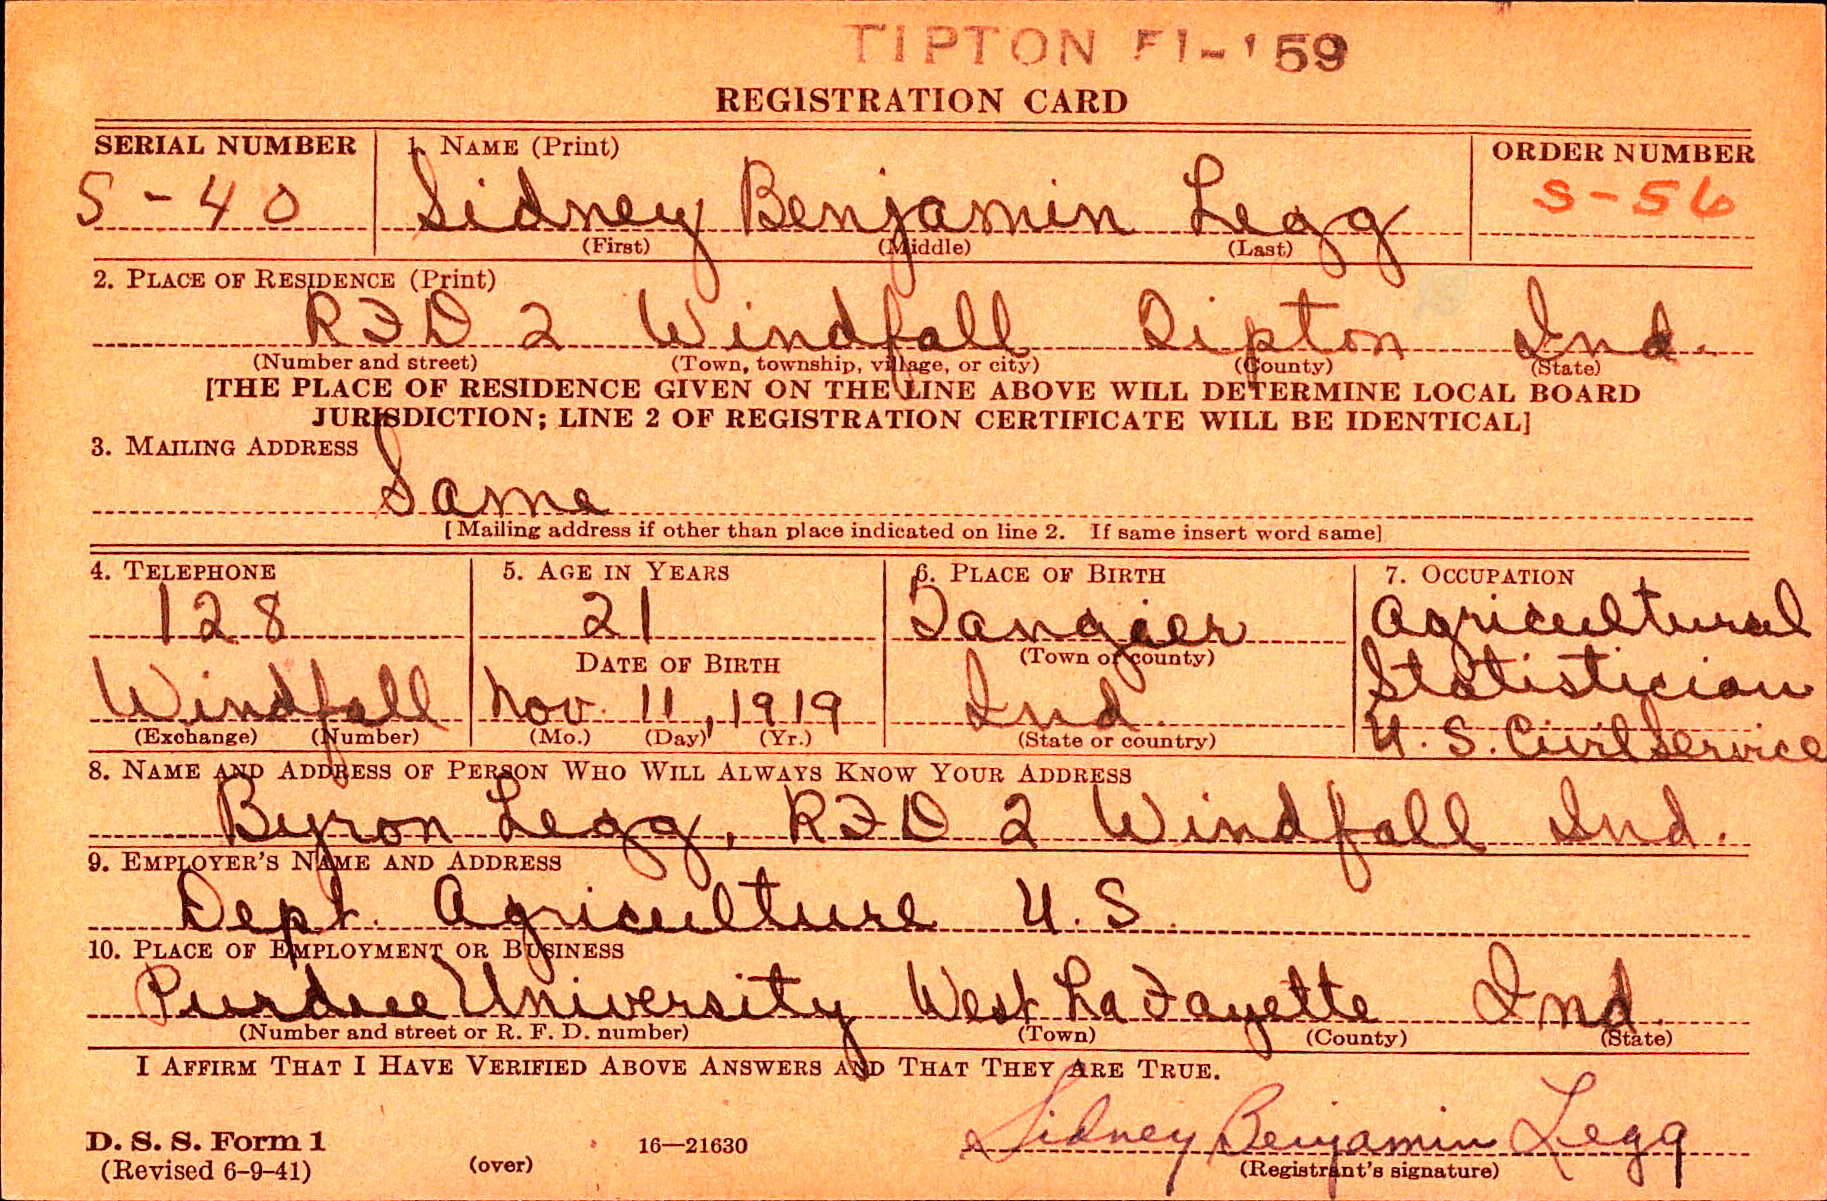 TIPTON 59
REGISTRATION CARD
SERIAL NUMBER 1. NAME (Print) ORDER NUMBER
S-40 Sidney Benjamin Legg S-56
(First) (Middle) (Last)
2. PLACE OF RESIDENCE (Print)
RFD 2 Windfall Tipton Ind.
(Number and street) (Town, township, village, or city) (County) (State)
[THE PLACE OF RESIDENCE GIVEN ON THE LINE ABOVE WILL DETERMINE LOCAL BOARD
JURISDICTION; LINE 2 OF REGISTRATION CERTIFICATE WILL BE IDENTICAL]
3. MAILING ADDRESS
Same
[Mailing address if other than place indicated on line 2. If same insert word same]
4. TELEPHONE 5. AGE IN YEARS 6. PLACE OF BIRTH 7. OCCUPATION
128 21 Tangier Agricultural
DATE OF BIRTH (Town or county) Statistician
Windfall Nov. 11, 1919 Ind. U.S. Civil Service
(Exchange) (Number) (Mo.) (Day) (Yr.) (State or country)
8. NAME AND ADDRESS OF PERSON WHO WILL ALWAYS KNOW YOUR ADDRESS
Byron Legg, RFD 2 Windfall Ind.
9. EMPLOYER'S NAME AND ADDRESS
Dept. Agriculture U.S.
10. PLACE OF EMPLOYMENT OR BUSINESS
Purdue University West LaFayette Ind.
(Number and street or R. F. D. number) (Town) (County) (State)
I AFFIRM THAT I HAVE VERIFIED ABOVE ANSWERS AND THAT THEY ARE TRUE.
Sidney Benjamin Legg
D. S. S. Form 1 16—21630
(Revised 6-9-41) (over) (Registrant's signature)